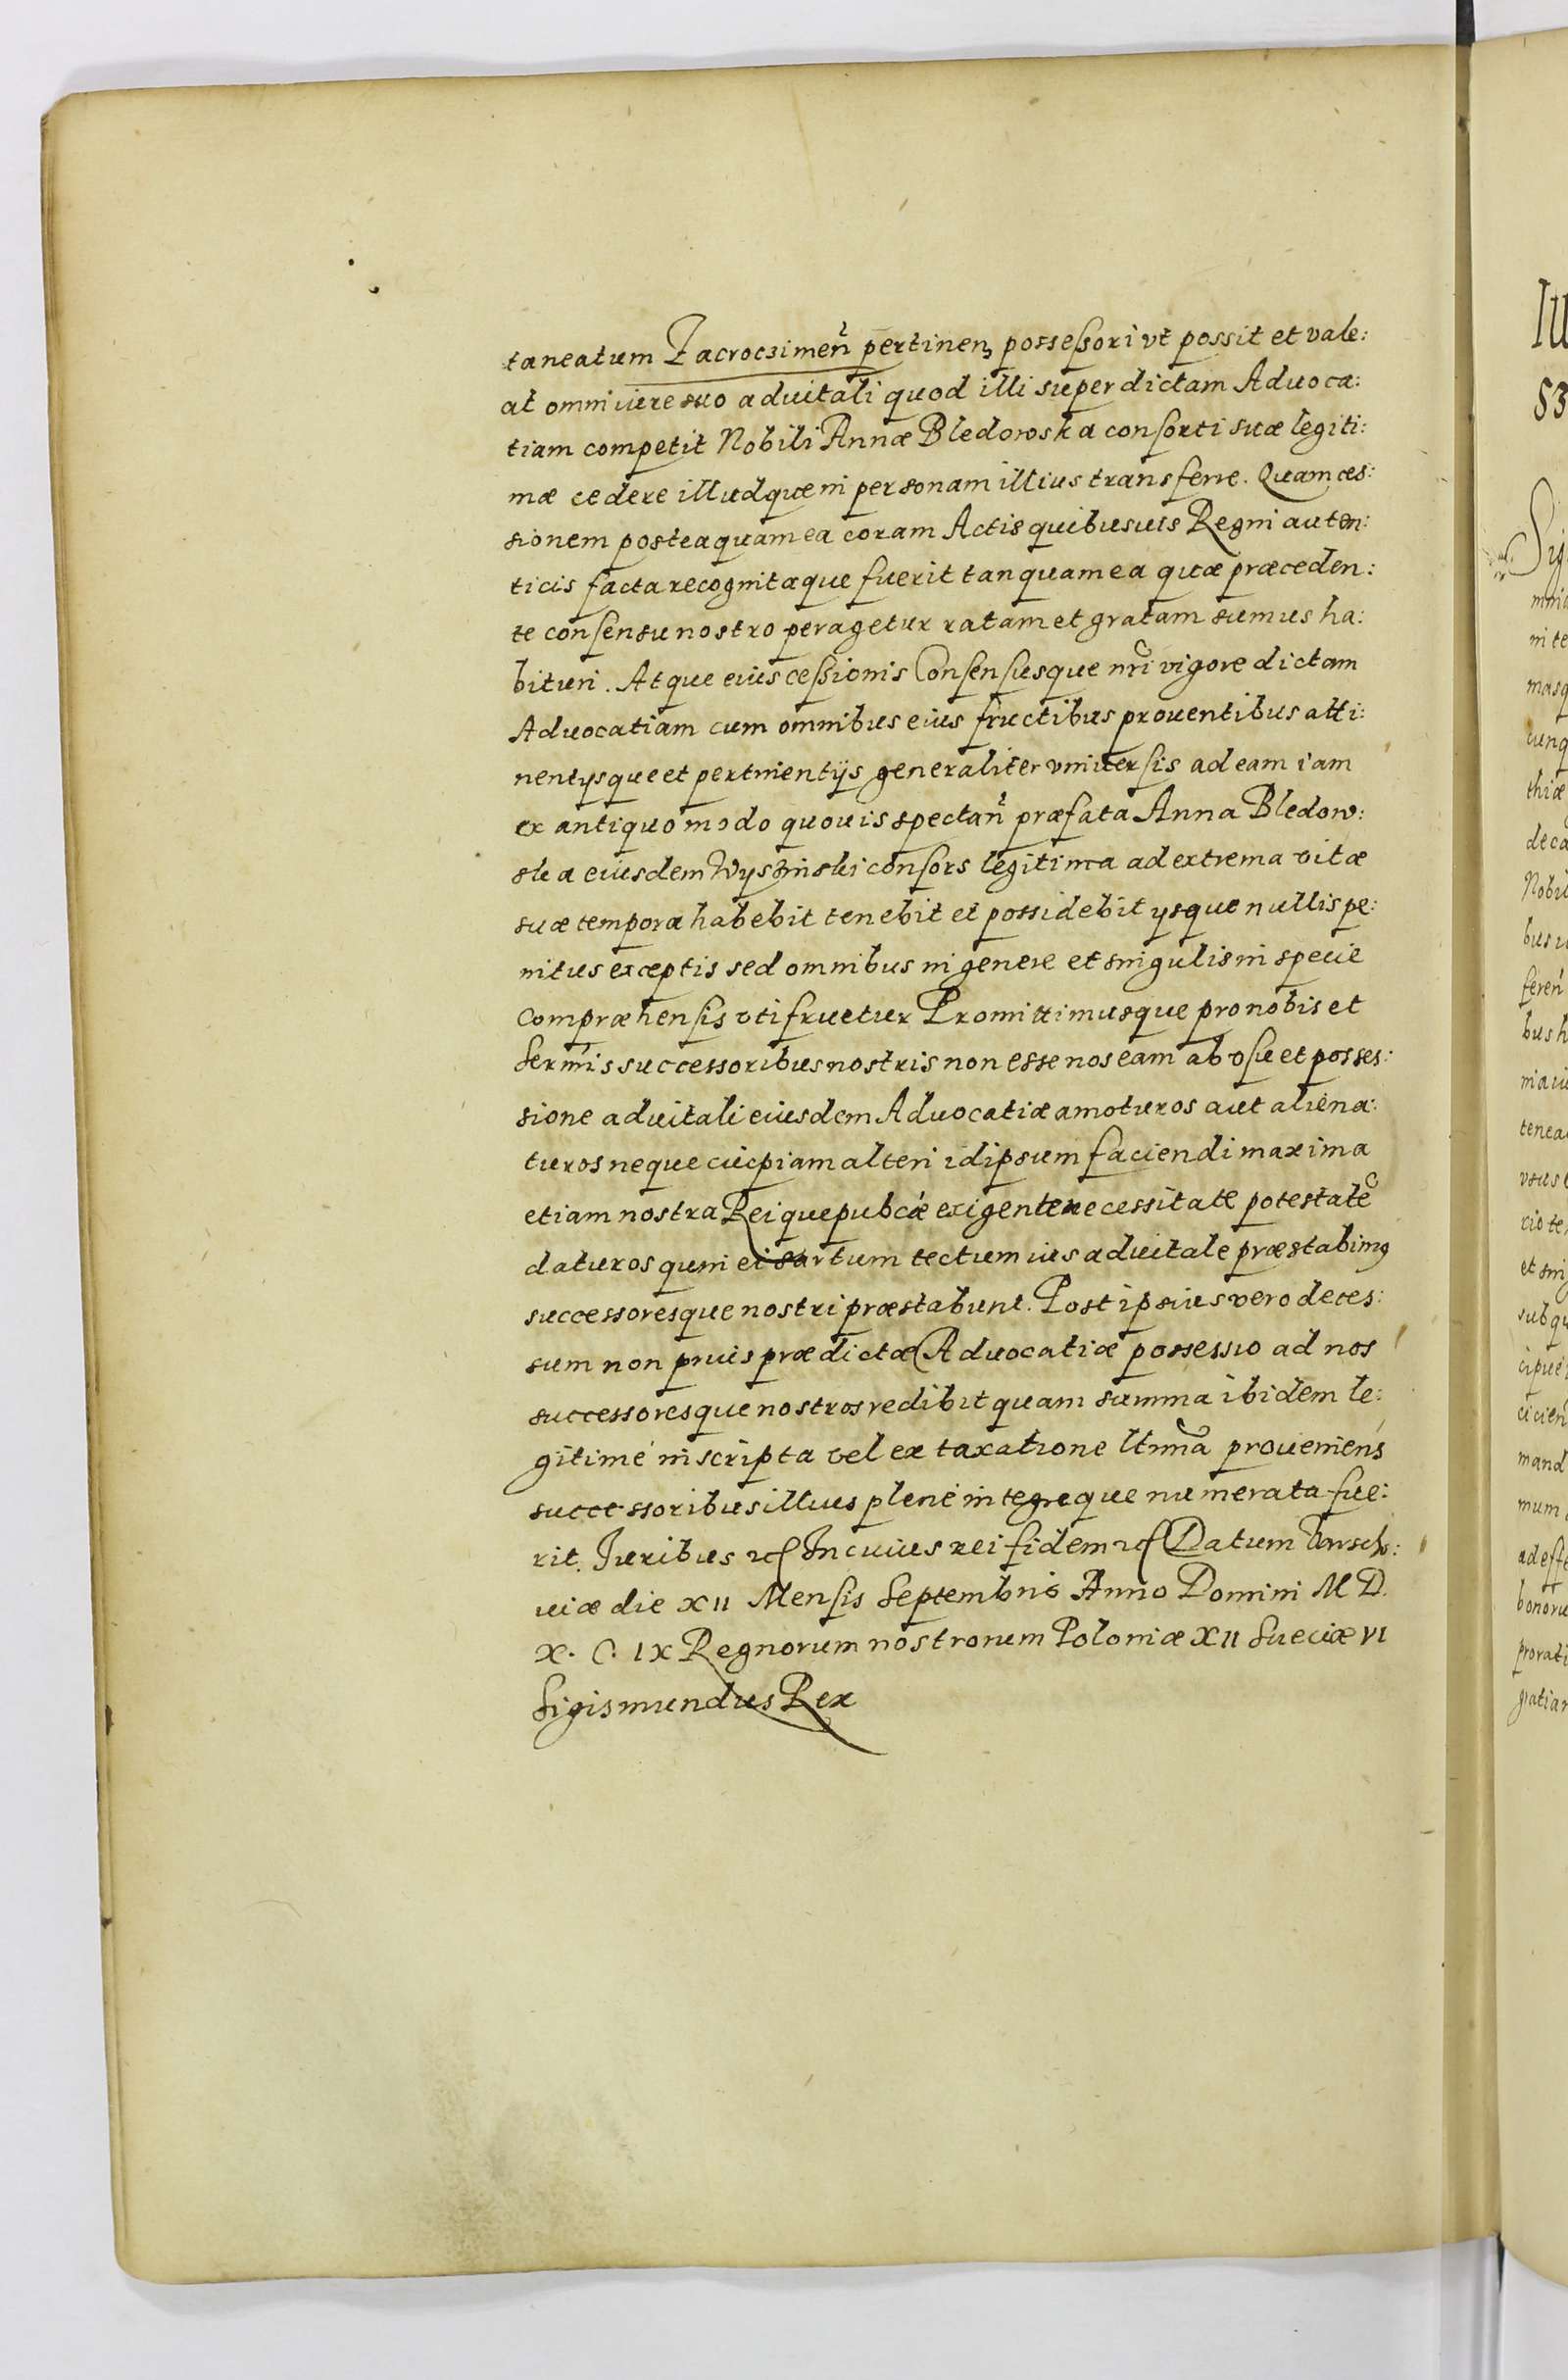 taneatum Zacroczimeñ pertineñ possessori vt possit et vale:
at omni iure suo aduitali quod illi super dictam Aduoca:
tiam competit Nobili Annæ Bledowska consorti suæ legiti:
mæ cedere illudque in personam illius transferre. Quam ces:
sionem posteaquam ea coram Actis quibusuis Regni auten:
ticis facta recognitaque fuerit tanquam ea quæ præceden:
te consensu nostro peragetur ratam et gratam sumus ha:
bituri. Atque eius cessionis Consensusque nri vigore dictam
Aduocatiam cum omnibus eius fructibus prouentibus atti:
nentysque et pertinentijs generaliter vniuersis ad eam iam
ex antiquo modo quouis spectañ præfata Anna Bledow:
ska eiusdem Wyszinski consors legitima ad extrema vitæ
suæ tempora habebit tenebit et possidebit ysque nullis pe:
nitus exceptis sed omnibus in genere et singulis in specie
compræhensis vti fruetur Promittimusque pro nobis et
Sermis successoribus nostris non esse nos eam ab vsu et posses:
sione aduitali eiusdem Aduocatiæ amoturos aut aliena:
turos neque cuipiam alteri id ipsum faciendi maxima
etiam nostra Reiquepubcæ exigente necessitate potestatē
daturos quin ei sartum tectum ius aduitale præstabimꝯ
successoresque nostri præstabunt. Post ipsius vero deces:
sum non prius prædictæ Aduocatiæ possessio ad nos
successoresque nostros redibit quam summa ibidem le:
gitimé inscripta vel ex taxatione ltmã proueniens
successoribus illius plené integreque numerata fue:
rit. Juribus etc In cuius rei fidem etc Datum Varscho:
uiæ die XII Mensis Septembris Anno Domini M D.
X. C. IX Regnorum nostrorum Poloniæ XII Sueciæ VI
Sigismundus Rex